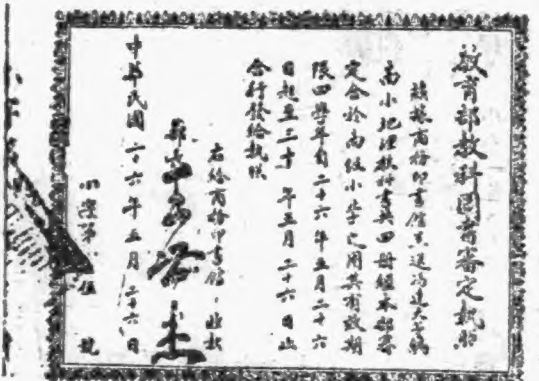 教育部教科圖書審定執照
據商務印書館呈送馮達夫編
高小地理教科書共四冊經本部審
定合於高級小學之用其有效期
限四學年自二十六年五月二十六
日起至三十 年五月二十六日止
合行發給執照
右給商務印書館 收執
中華民國二十六年五月二十六日
第 伍 號